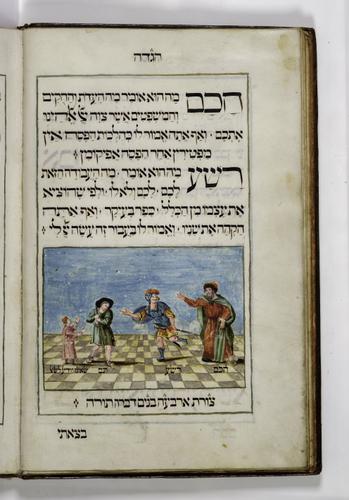 הגדה
חכם מה הוא אומר מה העדת והחקים
והמשפטים אשר צוה
אתכם · ואף אתה אמור לו כהלכות הפסח אין
מפטירין אחר הפסח אפיקומן
רשע מה הוא אומר · מה העבודה הזאת
לכם · לכם ולא לו · ולפי שהוציא
את עצמו מן הכלל · כפר בעיקר · ואף אתה
הקהה את שניו · ואמור לו בעבור זה עשה לי
חכם רשע תם
צורת ארבעה בנים דברה תורה
בצאתי